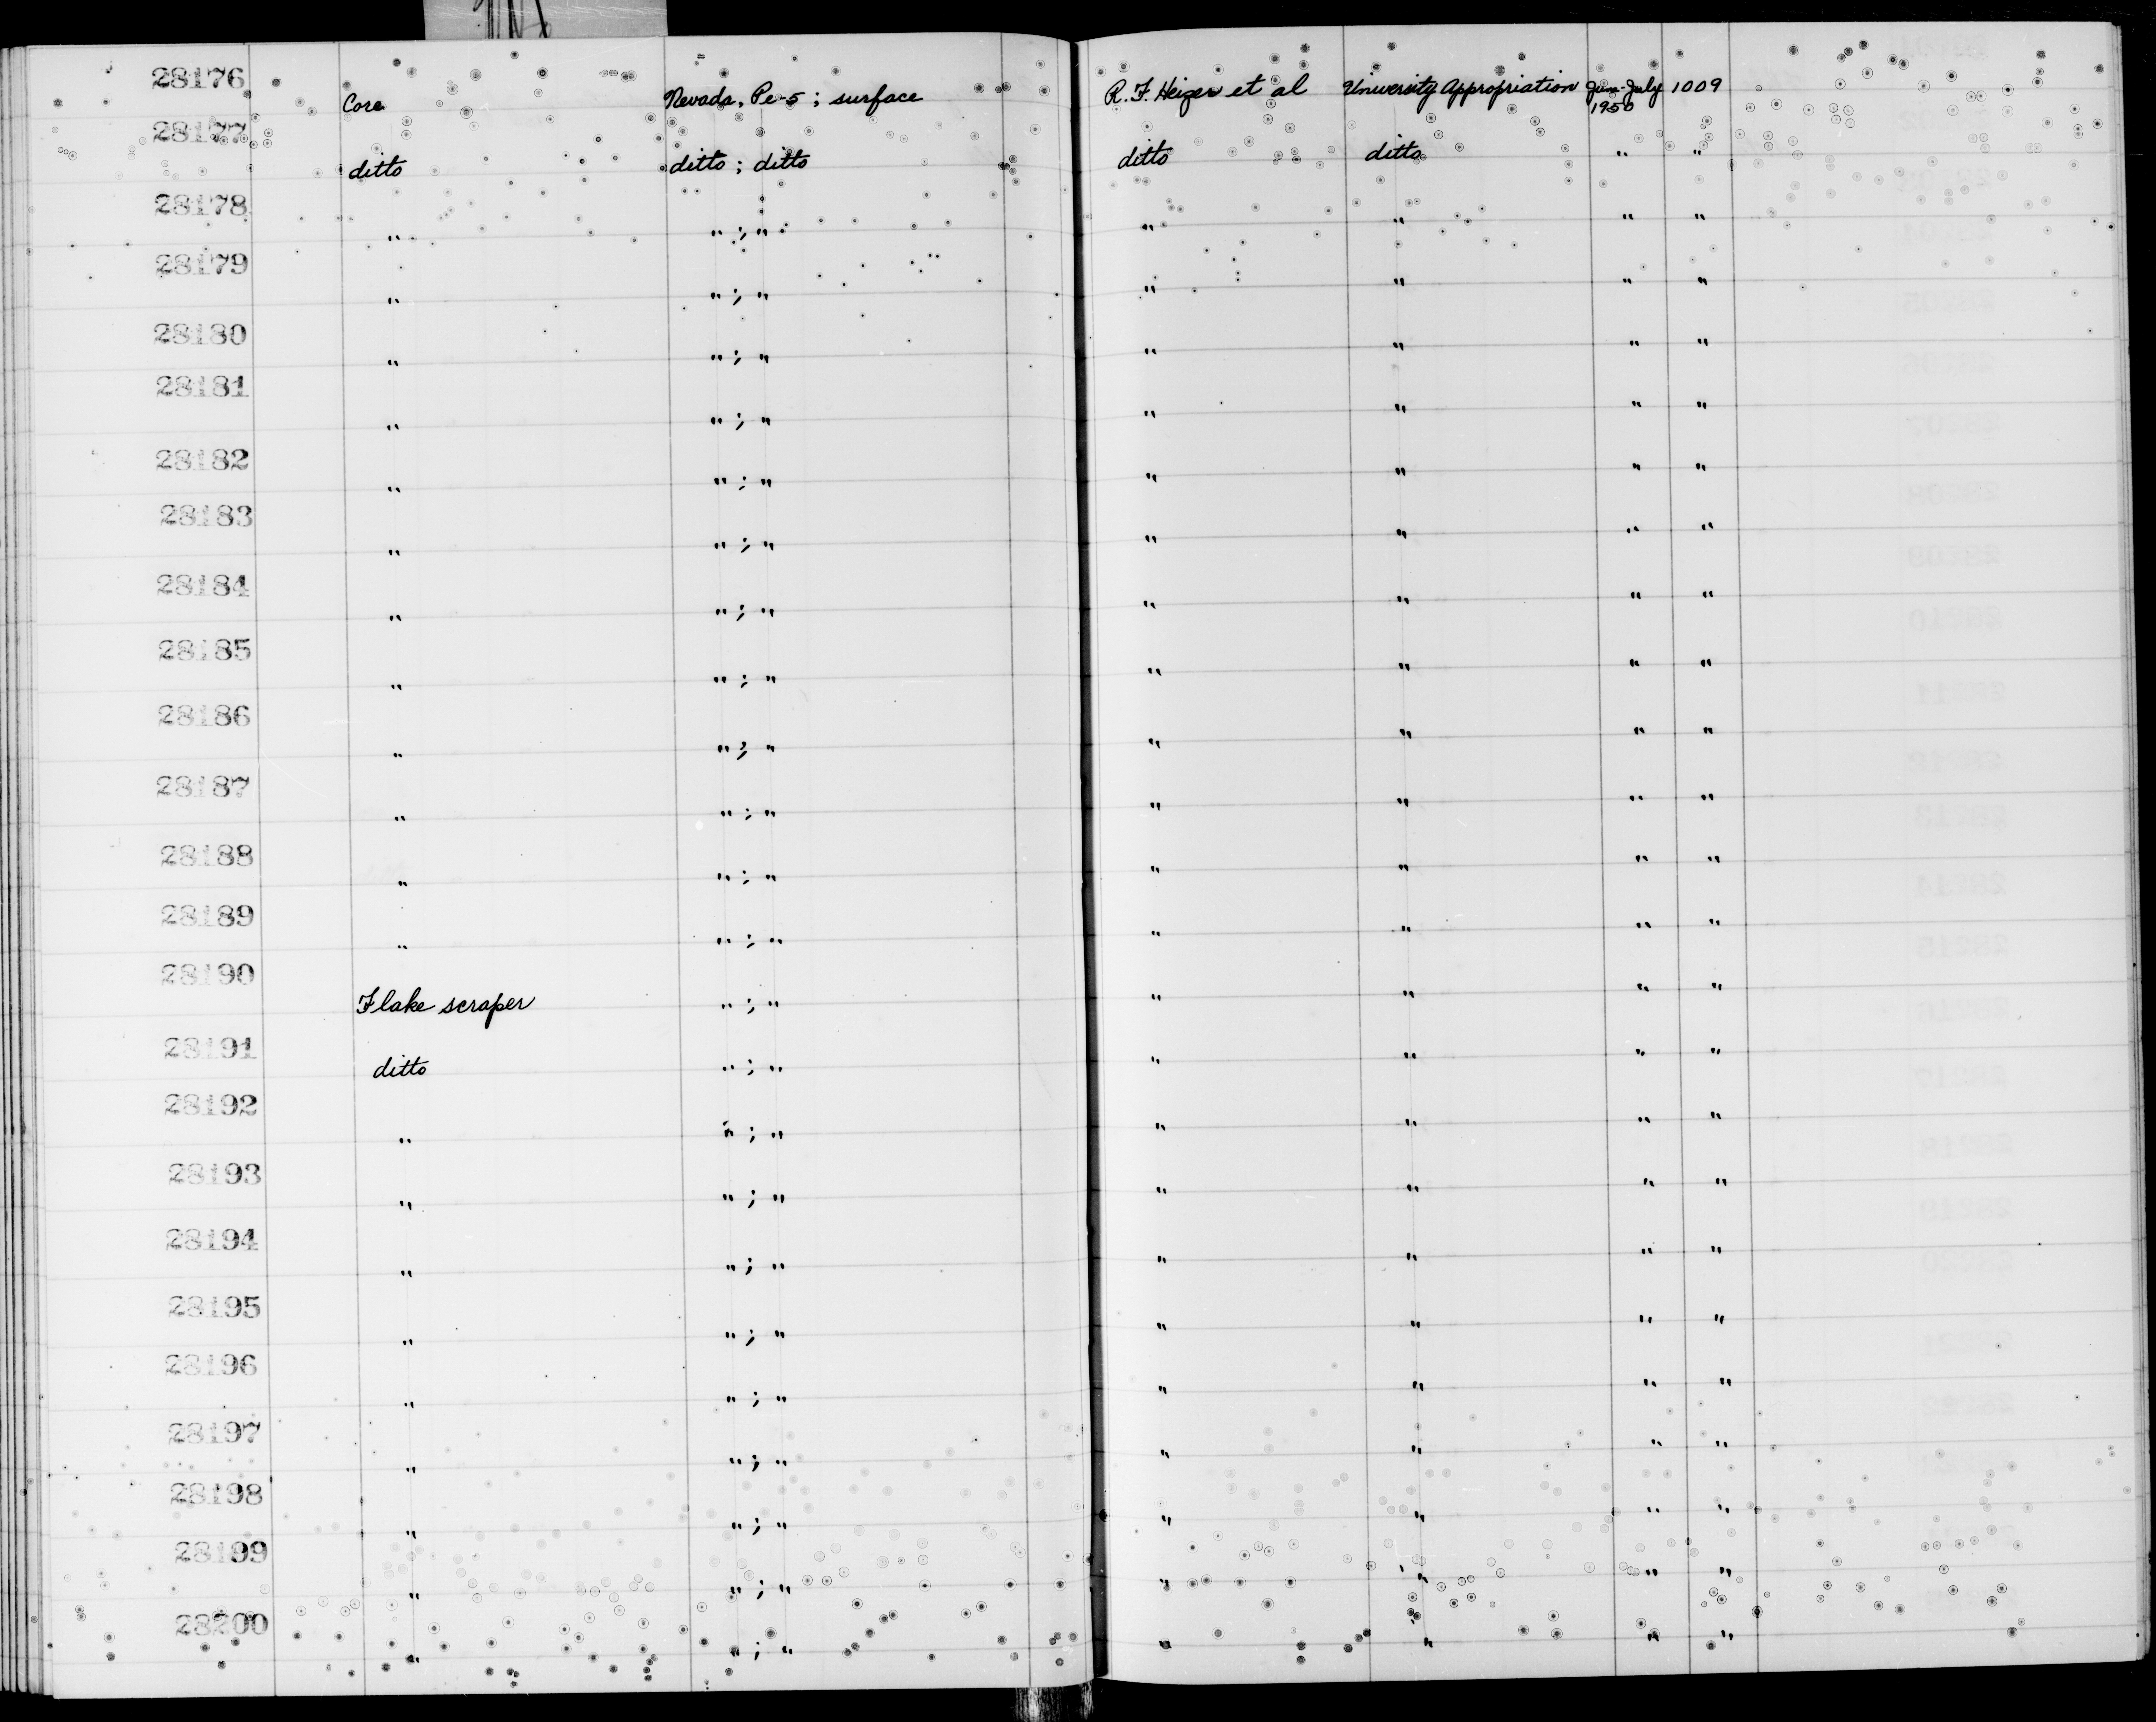 28176 Core Nevada, Pe-5 ; surface R. F. Heizer et al University Appropriation Jun-July 1009
1950
28177 ditto ditto ; ditto ditto ditto " "
28178 " " ; " " " " "
28179 " " ; " " " " "
28180 " " ; " " " " "
28181 " " ; " " " " "
28182 " " ; " " " " "
28183 " " ; " " " " "
28184 " " ; " " " " "
28185 " " ; " " " " "
28186 " " ; " " " " "
28187 " " ; " " " " "
28188 " " ; " " " " "
28189 " " ; " " " " "
28190 Flake scraper " ; " " " " "
28191 ditto " ; " " " " "
28192 " " ; " " " " "
28193 " " ; " " " " "
28194 " " ; " " " " "
28195 " " ; " " " " "
28196 " " ; " " " " "
28197 " " ; " " " " "
28198 " " ; " " " " "
28199 " " ; " " " " "
28200 " " ; " " " " "